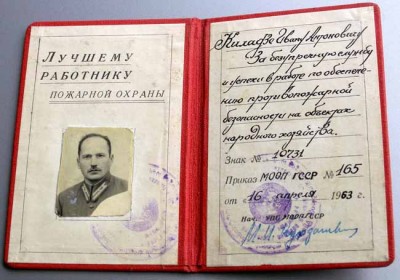 ЛУЧШЕМУ
РАБОТНИКУ
ПОЖАРНОЙ ОХРАНЫ
Киладзе Ивану Антоновичу
За безупречную службу
и успехи в работе по обеспече-
нию противопожарной
безопасности на объектах
народного хозяйства.
Знак № 10731
Приказ МООП ГССР № 165
от 16 апреля 1963 г.
Нач. УПО МООП ГССР